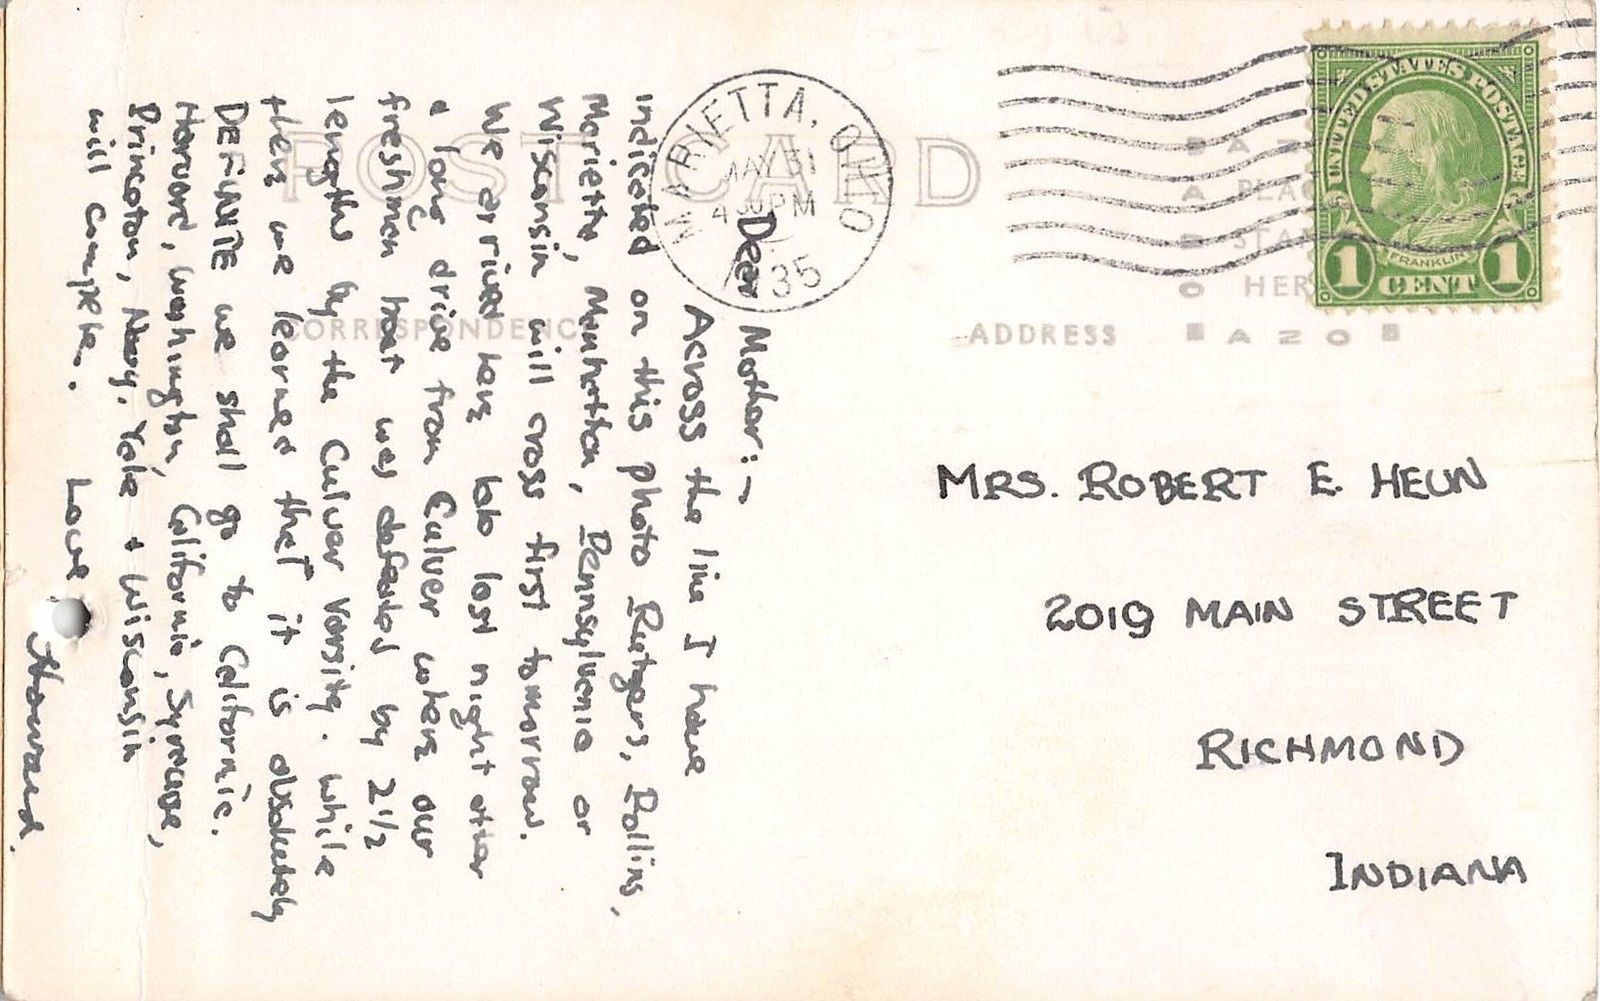 POST CARD
CORRESPONDENCE
ADDRESS
MARIETTA, OHIO
MAY 31
4 30 PM
1935
UNITED STATES POSTAGE
FRANKLIN
1 CENT 1
AZO
PLAC
STAM
HER
AZO
Dear Mother:-
Across the line I have
indicated on this photo Rutgers, Rollins,
Marietta, Manhattan, Pennsylvania or
Wisconsin will cross first tomorrow.
We arrived here late last night after
a long drive from Culver where our
freshmen boat was defeated by 2 1/2
lengths by the Culver Varsity. While
there we learned that it is absolutely
DEFINITE we shall go to California.
Harvard, Washington, California, Syracuse,
Princeton, Navy, Yale + Wisconsin
will compete.
Love
Howard.
MRS. ROBERT E. HEUN
2019 MAIN STREET
RICHMOND
INDIANA